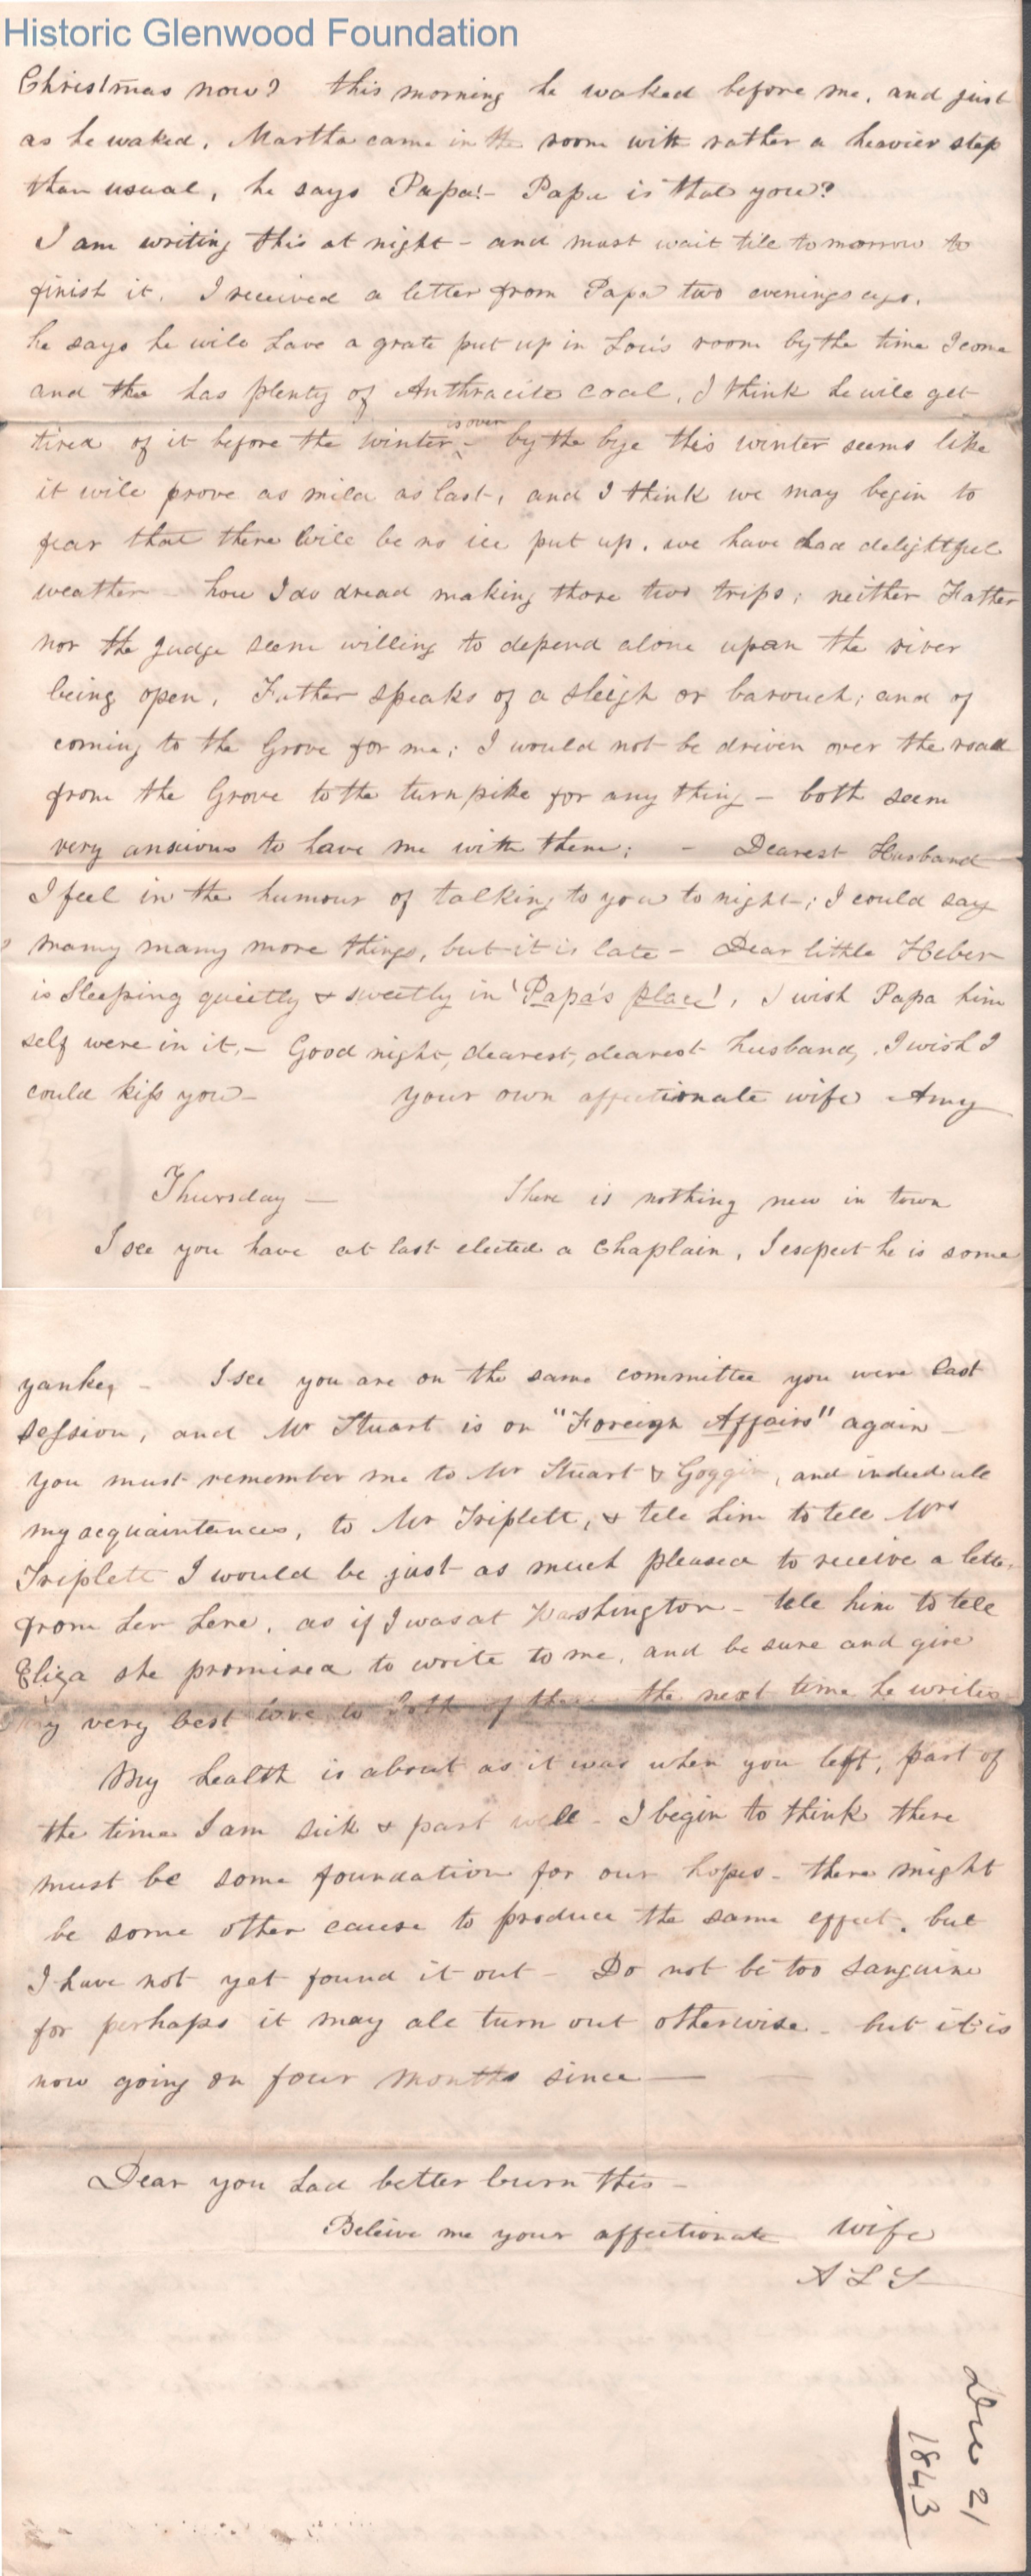 Historic Glenwood Foundation
Christmas now? this morning he waked before me, and just
as he waked, Martha came in the room with rather a heavier step
than usual, he says Papa!- Papa is that you?
I am writing this at night - and must wait till tomorrow to
finish it. I received a letter from Papa two evenings ago,
he says he will have a grate put up in Lou's room by the time I come
and the has plenty of Anthracite coal, I think he will get
tired of it before the winter is over - by the bye this winter seems like
it will prove as mild as last, and I think we may begin to
fear that there will be no ice put up. we have had delightful
weather - how I do dread making those two trips; neither Father
nor the Judge seem willing to depend alone upon the river
being open, Father speaks of a sleigh or barouch; and of
coming to the Grove for me; I would not be driven over the road
from the Grove to the turnpike for any thing - both seem
very anxious to have me with them; - Dearest Husband
I feel in the humour of talking to you to night; I could say
many many more things, but it is late - Dear little Heber
is sleeping quietly & sweetly in 'Papa's place', I wish Papa him
self were in it. - Good night, dearest, dearest husband, I wish I
could kiss you - your own affectionate wife Amy
Thursday - There is nothing new in town
I see you have at last elected a Chaplain, I expect he is some
yankey - I see you are on the same committee you were last
session, and Mr Stuart is on "Foreign Affairs" again -
you must remember me to Mr Stuart & Goggin, and indeed all
my acquaintances, to Mr Triplett, & tell him to tell Mrs
Triplett I would be just as much pleased to receive a letter
from her here, as if I was at Washington - tell him to tell
Eliza she promised to write to me, and be sure and give
my very best love to both of them the next time he writes
My health is about as it was when you left, part of
the time I am sick & part well - I begin to think there
must be some foundation for our hopes - there might
be some other cause to produce the same effect, but
I have not yet found it out - Do not be too sanguine
for perhaps it may all turn out otherwise - but it is
now going on four months since -
Dear you had better burn this -
Beleive me your affectionate wife
A L S
Dec 21
1843